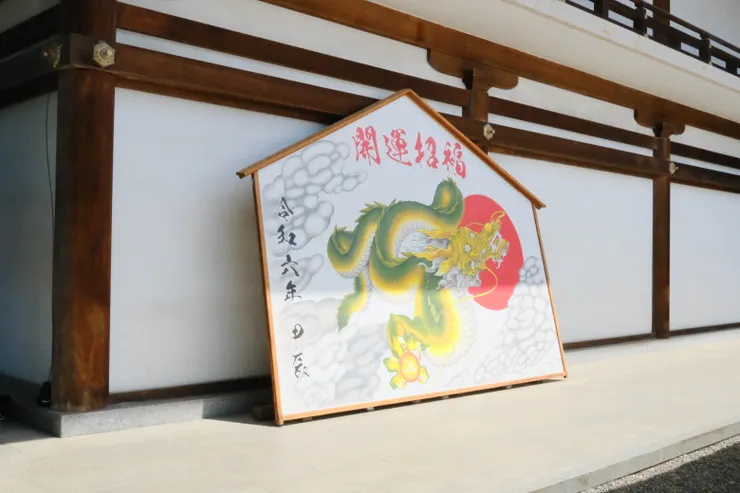 開運招福
令和六年 甲辰